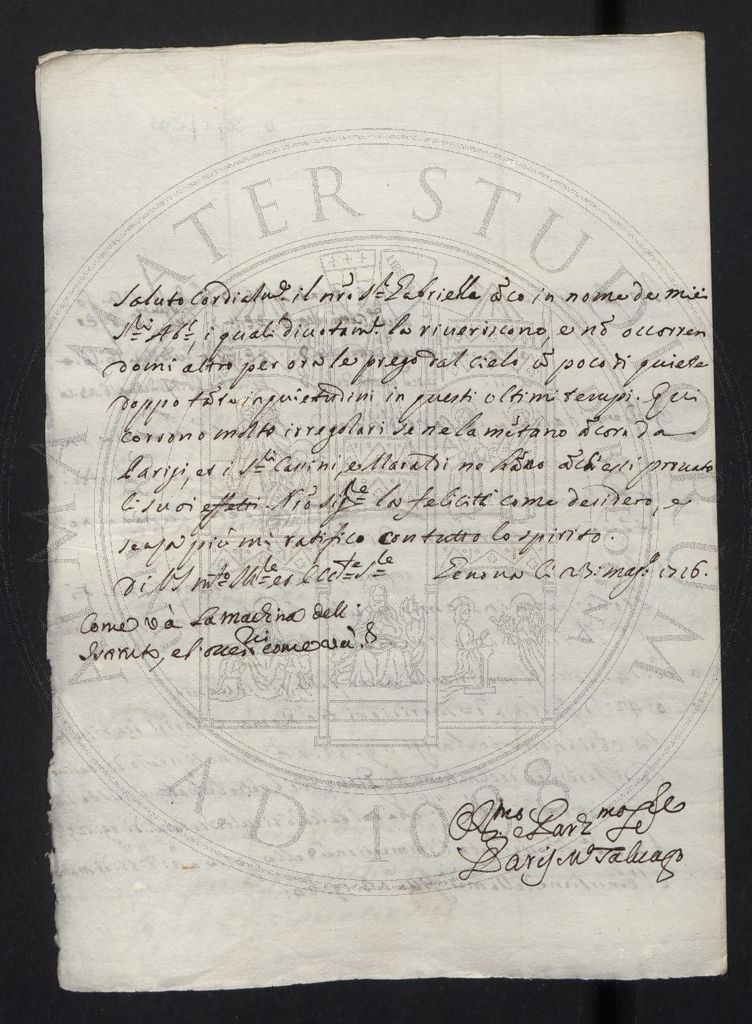 Saluto Cordialmte. il nro Sr. Gabriello āco in nome de miei
Sri. Abti., i quali divotamte. la riveriscono, e nō occorren
domi altro per ora le prego dal cielo ū poco di quiete
doppo tāte inquietudini in questi ultimi tempi. Qui
corrono molto irregolari, se ne lamētano ācora da
Parigi, et i Sri. Cassini, e Maraldi ne hāno āch'essi provato
li suoi effetti. Nro Sigre la feliciti come desidero, e
senza più mi ratifico con tutto lo spirito.
Di VS mto. Illre et Eccte Sre Genova li 23: mago. 1716.
Come và La machina dell:
Istituto, e l' come và?
ALMA MATER STUDIORUM
A.D. 1088
mo mo
Paris Ma Salvago